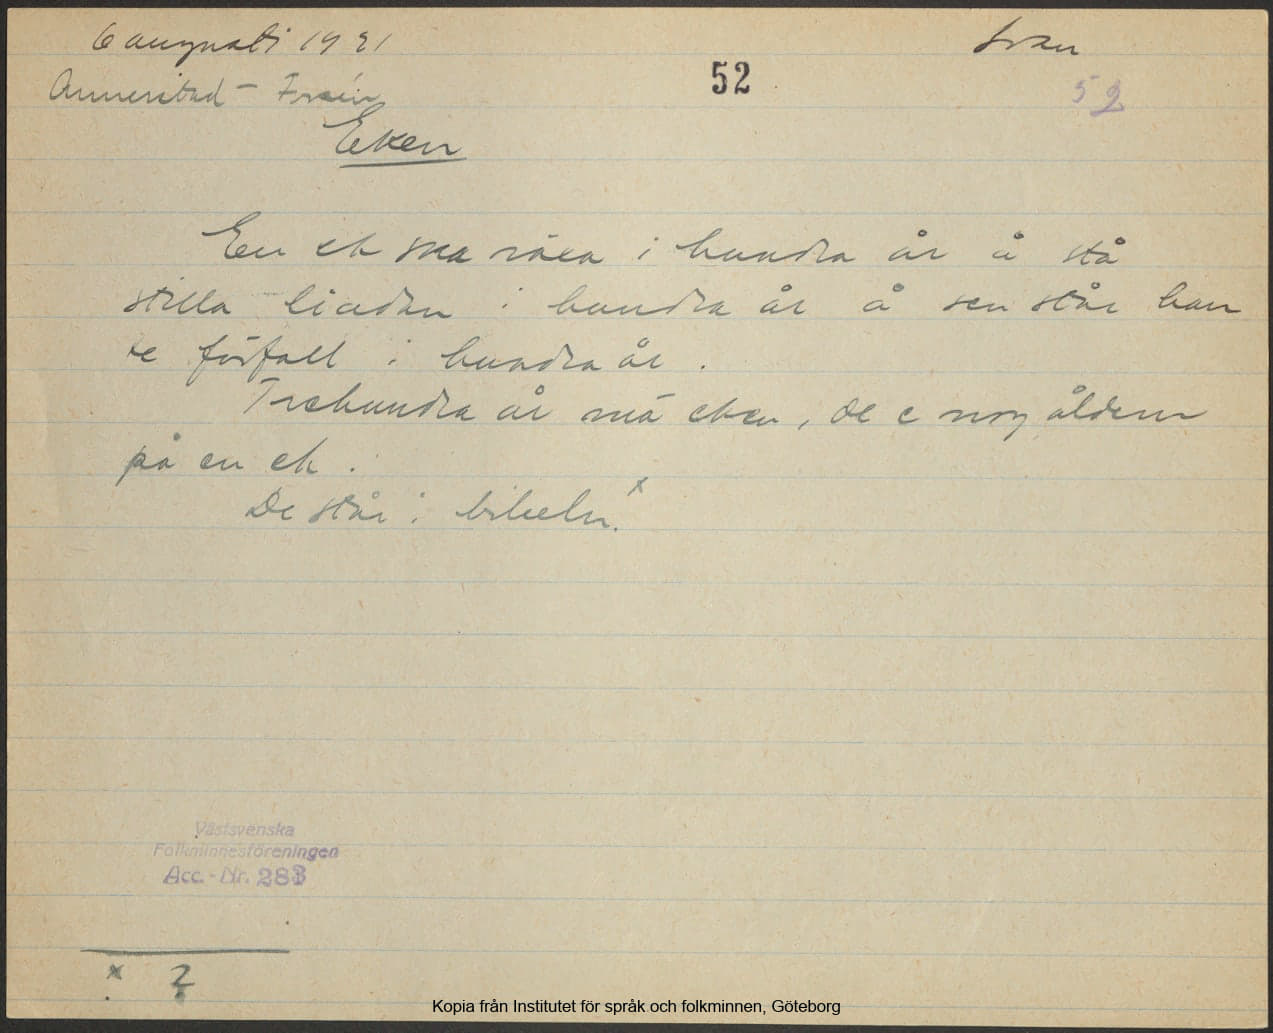 6 augusti 1921
Svan
Annerstad -
52
52
Eken
En ek ska växa i hundra år å stå
stilla liadan i hundra år å sen står han
te förfall i hundra år.
Trehundra år må eken, de e nog åldern
på en ek.
De står i bibeln.x
Västsvenska
Folkminnesföreningen
Acc.-Nr. 283
x ?
Kopia från Institutet för språk och folkminnen, Göteborg